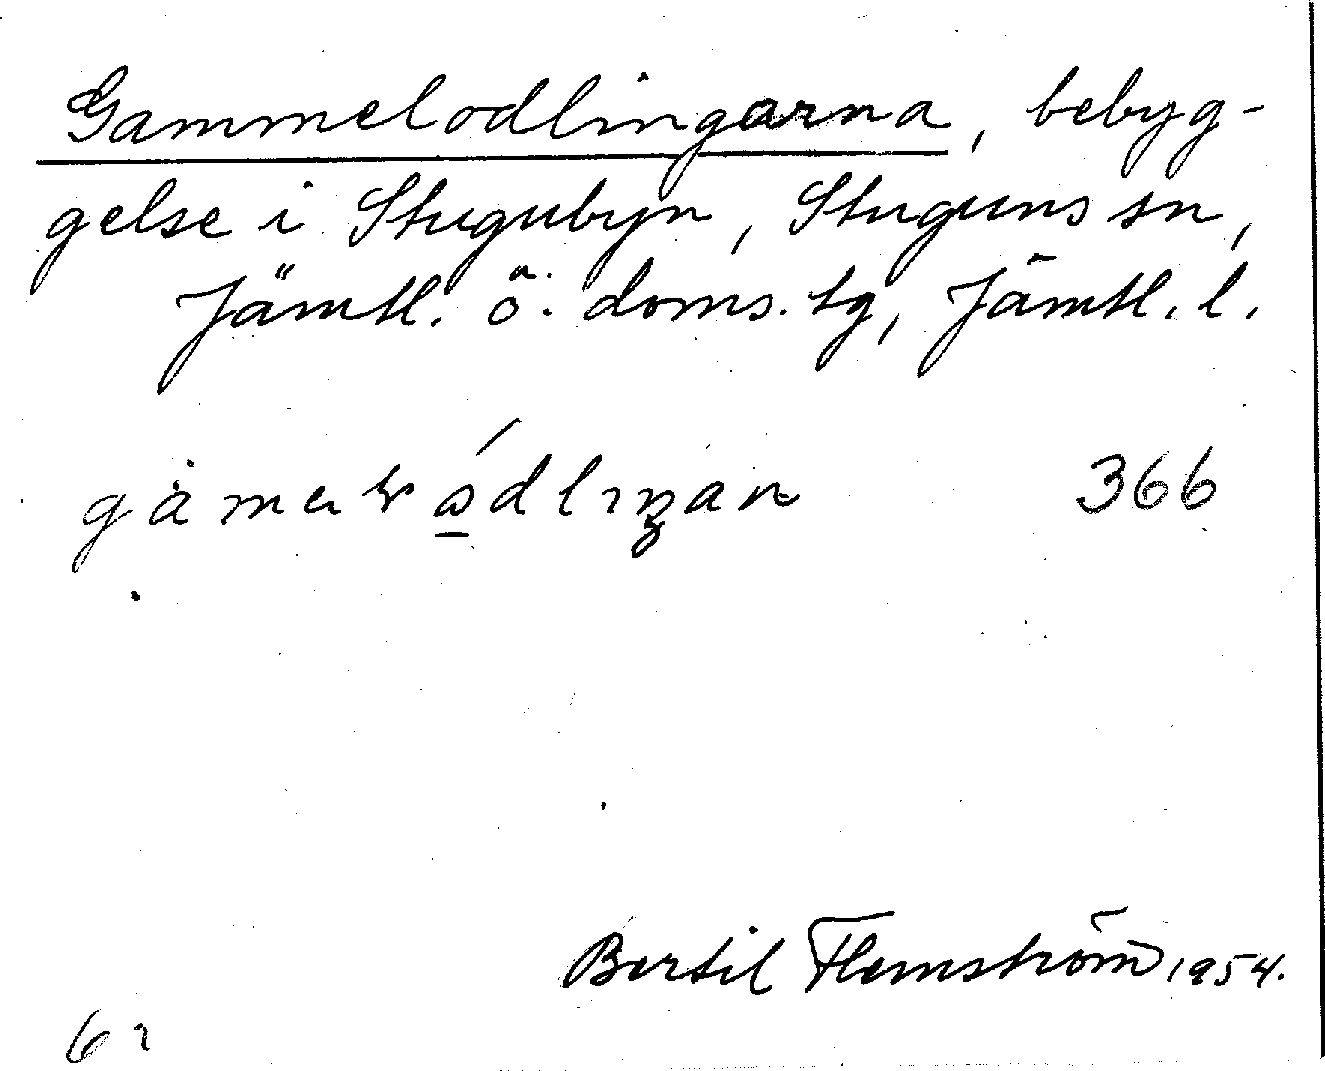 Gammelodlingarna, bebyg-
gelse i Stugubyn, Stuguns sn,
Jämtl. ö. doms. tg, Jämtl. l.
366
Bertil Flemström 1954.